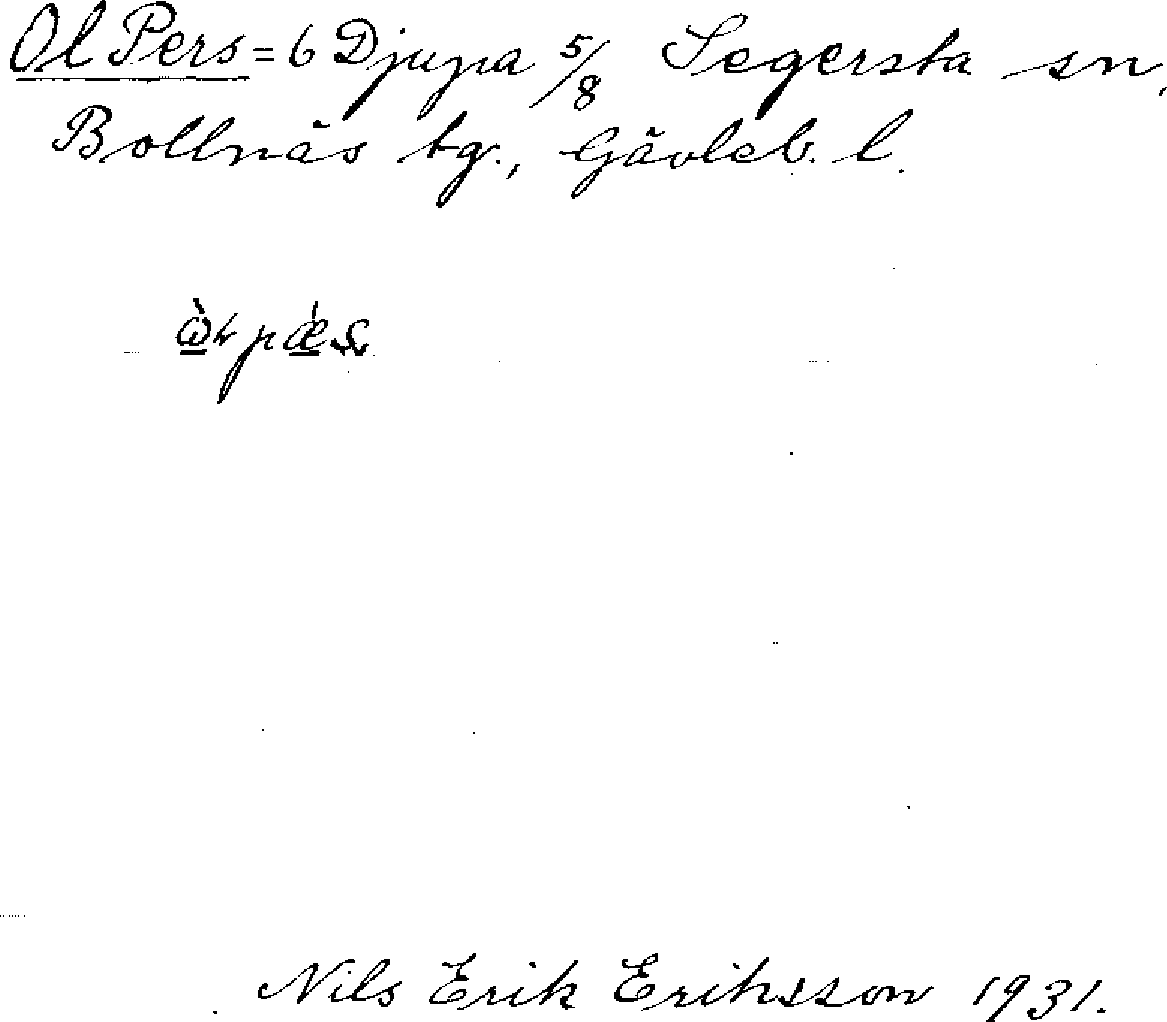 Ol Pers = 6 Djupa 5/8 Segersta sn,
Bollnäs tg., Gävleb. l.
Nils Erik Eriksson 1931.